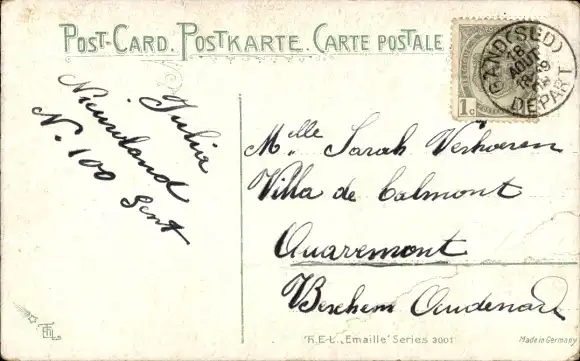 POST-CARD. POSTKARTE. CARTE POSTALE
GAND (SUD)
18
AOUT
18-19
DEPART
1c
Julia
Nieuwland
N. 100 Gent
Melle Sarah Verhoeven
Villa de Calmont
Quaremont
Berchem Oudenard
T.E.L. „Emaille" Series 3001
Made in Germany